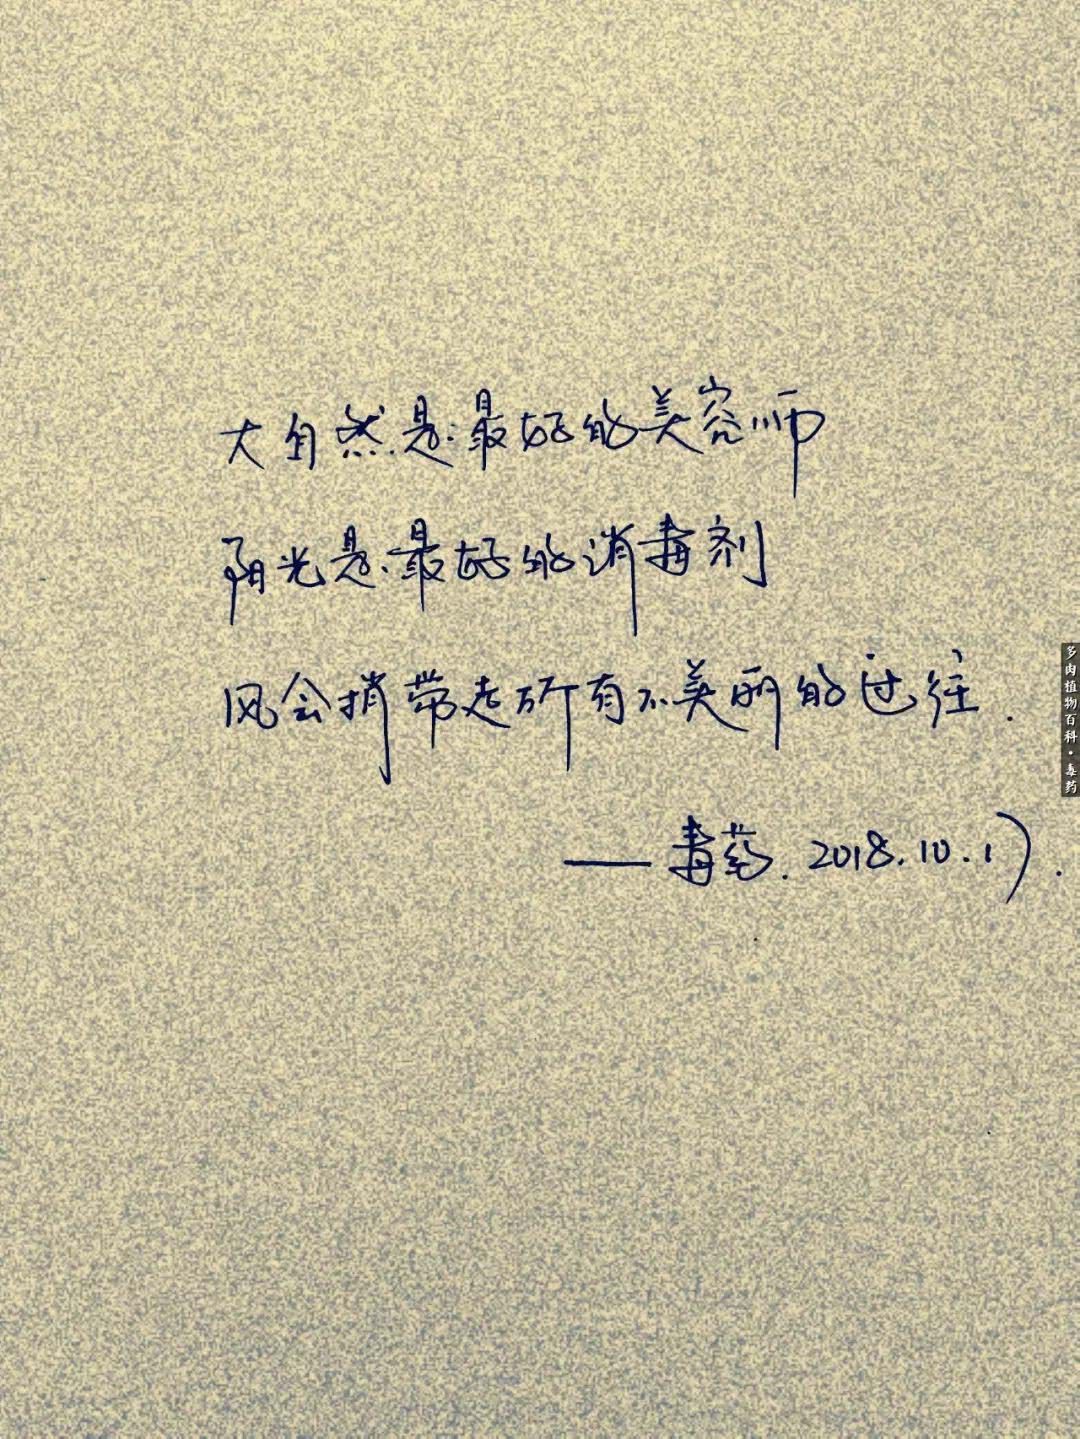 大自然是最好的美容师
阳光是最好的消毒剂
风会捎带走所有不美丽的过往.
——毒药.2018.10.17.
多肉植物百科·毒药